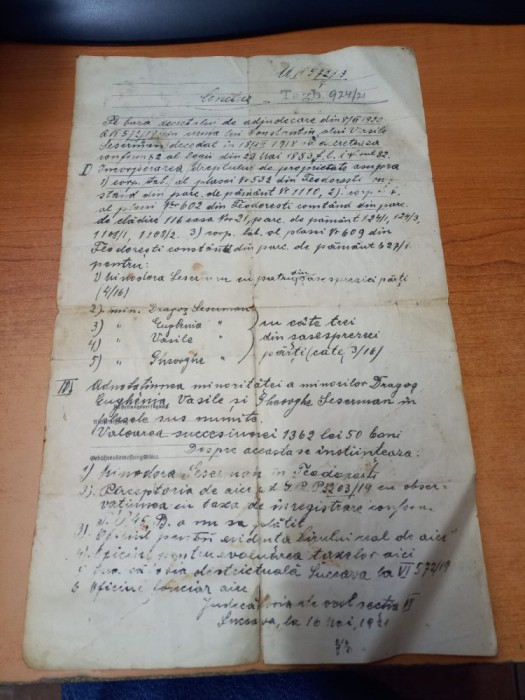 U.I. 572/19
Conclus Tezb. 924/21
Pe baza decretului de adjudecare din 8/III 1920
A II 572/19 in urma lui Constantin, a lui Vasile
Seserman, decedat in 1918 se
conform § 2 al legii din 23 Mai 1883 f. l. i. Nr 82.
I Incorporarea dreptului de proprietate asupra
1) corp. tab. al plasei Nr 532 din Teodoresti
din parc. de pământ Nr 1110, 2) corp. t.
al plasei Nr 602 din Teodoresti constând din parc.
de clădire 116 casa Nr 21, parc. de pământ 124/1, 124/3,
1109/1, 1109/2. 3) corp. tab. al plasei Nr 609 din
Teodorești constând din parc. de pământ 627/1
pentru:
1) Minodora Seserman cu patru din sasesprezeci părți
(4/16)
2) min. Dragoș Seserman
3) " Eughenia "
4) " Vasile "
5) " Gheorghe "
cu câte trei
din sasesprezeci
părți (câte 3/16)
III Adnotatiunea minoritătei a minorilor Dragoș
Eughenia, Vasile și Gheorghe Seserman in
sus numita.
Valoarea succesiunei 1362 lei 50 bani
Despre aceasta se instiinteaza:
1) Minodora Seserman in Teodoresti
2) Perceptoria de aici 203/19 cu obser-
vatiunea cu taxa de inregistrare conform
a nu sa plătit
3) Oficiul pentru evidenta birului real de aici
4) Oficiul pentru evaluarea taxelor aici
5 districtuală Suceava la VI 572/19
6 Oficiul funciar aici
Judecătoria de ocol sectia VI
Suceava, la 10 Mai, 1921